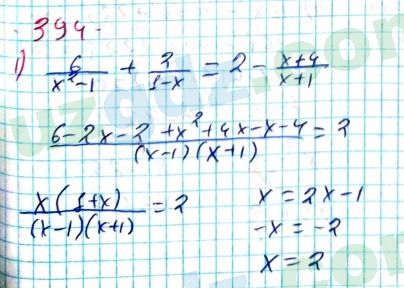 394.
1) 6/(x²-1) + 2/(1-x) = 2 - (x+4)/(x+1)
(6-2x-2+x²+4x-x-4)/((x-1)(x+1)) = 2
x(1+x)/((x-1)(x+1)) = 2
x = 2x-1
-x = -2
x = 2